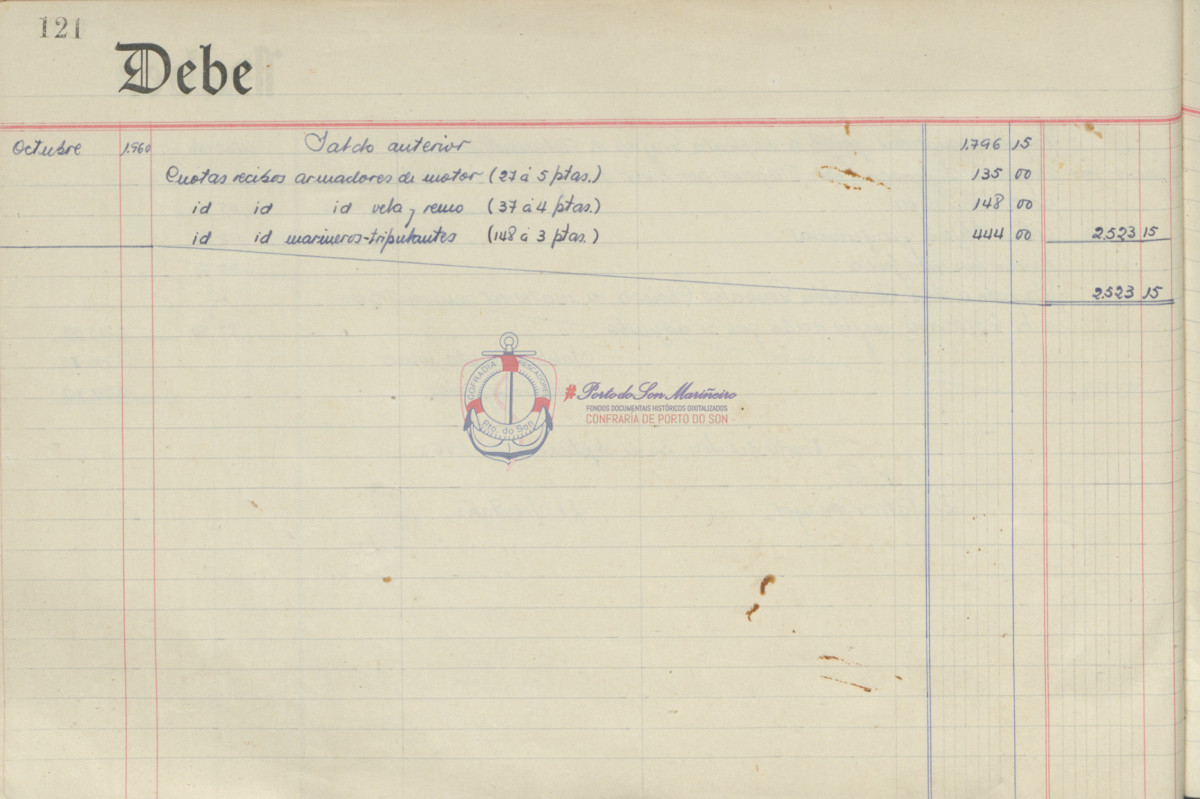 121
Debe
Octubre 1.960 Saldo anterior 1.796 15
Cuotas recibos armadores de motor (27 á 5 ptas.) 135 00
id id id vela y remo (37 á 4 ptas.) 148 00
id id marineros-tripulantes (148 á 3 ptas.) 444 00 2.523 15
2.523 15
COFRADIA PESCADORES
Pto. do Son
#Porto do Son Mariñeiro
FONDOS DOCUMENTAIS HISTÓRICOS DIXITALIZADOS
CONFRARÍA DE PORTO DO SON